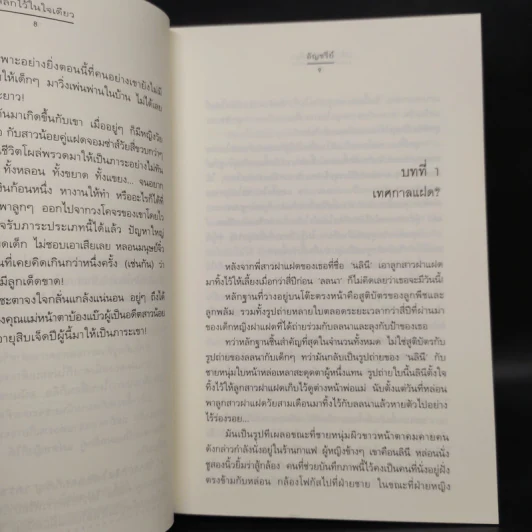 ลักไว้ในใจเดียว
8
พาะอย่างยิ่งตอนนี้ที่คนอย่างเขายังไม่มี
ให้เด็กๆ มาวิ่งเพ่นพ่านในบ้าน ไม่ได้เลย
ะยาว!
มันมาเกิดขึ้นกับเขา เมื่ออยู่ๆ ก็มีหญิงวัย
กับสาวน้อยคู่แฝดจอมซ่าส์วัยสี่ขวบกว่าๆ
ชีวิตโผล่พรวดมาให้เป็นภาระอย่างไม่ทัน
ทั้งหลอน ทั้งขยาด ทั้งแขยง... จนอยาก
งินก้อนหนึ่ง หางานให้ทำ หรืออะไรก็ได้ที่
พาลูกๆ ออกไปจากวงโคจรของเขาโดยไว
จรับภาระประเภทนี้ได้แล้ว ปัญหาใหญ่
ยดเด็ก ไม่ชอบเอาเสียเลย หลอนมนุษย์จิ๋ว
นที่เคยคิดเกินกว่าหนึ่งครั้ง (เช่นกัน) ว่า
มีลูกเด็ดขาด!
ชะตาจงใจกลั่นแกล้งแน่นอน อยู่ๆ ถึงได้
งคุณแม่หน้าตาบ้องแบ๊วผู้เป็นอดีตสาวน้อย
อายุสิบเจ็ดปีผู้นี้มาให้เป็นภาระเขา!
อัญชรีย์
9
บทที่ 1
เทศกาลแฝด?
หลังจากพี่สาวฝาแฝดของเธอที่ชื่อ 'นลินี' เอาลูกสาวฝาแฝด
มาทิ้งไว้ให้เลี้ยงเมื่อกว่าสี่ปีก่อน 'ลลนา' ก็ไม่คิดเลยว่าเธอจะมีวันนี้!
หลักฐานที่วางอยู่บนโต๊ะตรงหน้าคือสูติบัตรของลูกพีชและ
ลูกพลัม รวมทั้งรูปถ่ายหลายใบตลอดระยะเวลากว่าสี่ปีที่ผ่านมา
ของเด็กหญิงฝาแฝดที่ได้ถ่ายร่วมกับลลนาและลุงกับป้าของเธอ
ทว่าหลักฐานชิ้นสำคัญที่สุดในจำนวนทั้งหมด ไม่ใช่สูติบัตรกับ
รูปถ่ายของลลนากับเด็กๆ ทว่ามันกลับเป็นรูปถ่ายของ 'นลินี' กับ
ชายหนุ่มใบหน้าหล่อเหลาสะดุดตาผู้หนึ่งแทน รูปถ่ายใบนี้นลินีตั้งใจ
ทิ้งไว้ให้ลูกสาวฝาแฝดเก็บไว้ดูต่างหน้าพ่อแม่ นับตั้งแต่วันที่หล่อน
พาลูกสาวฝาแฝดวัยสามเดือนมาทิ้งไว้กับลลนาแล้วหายตัวไปอย่าง
ไร้ร่องรอย...
มันเป็นรูปที่เผลอขณะที่ชายหนุ่มผิวขาวหน้าตาคมคายคน
ดังกล่าวกำลังนั่งอยู่ในร้านกาแฟ ผู้หญิงข้างๆ เขาคือนลินี หล่อนนั่ง
ชูสองนิ้วยิ้มร่าสู้กล้อง คนที่ช่วยบันทึกภาพนี้ไว้คงเป็นคนที่นั่งอยู่ฝั่ง
ตรงข้ามกับหล่อน กล้องโฟกัสไปที่ฝ่ายชาย ในขณะที่ฝ่ายหญิง